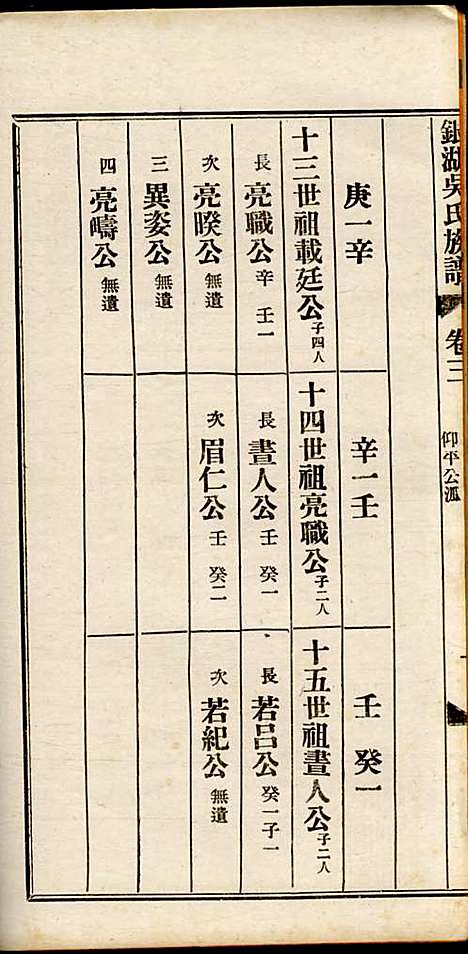 銀湖吳氏族譜 卷三 仰平公派
庚一辛
十三世祖載廷公 子四人
長 亮職公 辛 壬一
次 亮暌公 無遺
三 異姿公 無遺
四 亮疇公 無遺
辛一壬
十四世祖亮職公 子二人
長 晝人公 壬 癸一
次 眉仁公 壬 癸二
壬 癸一
十五世祖晝人公 子二人
長 若呂公 癸一子一
次 若紀公 無遺